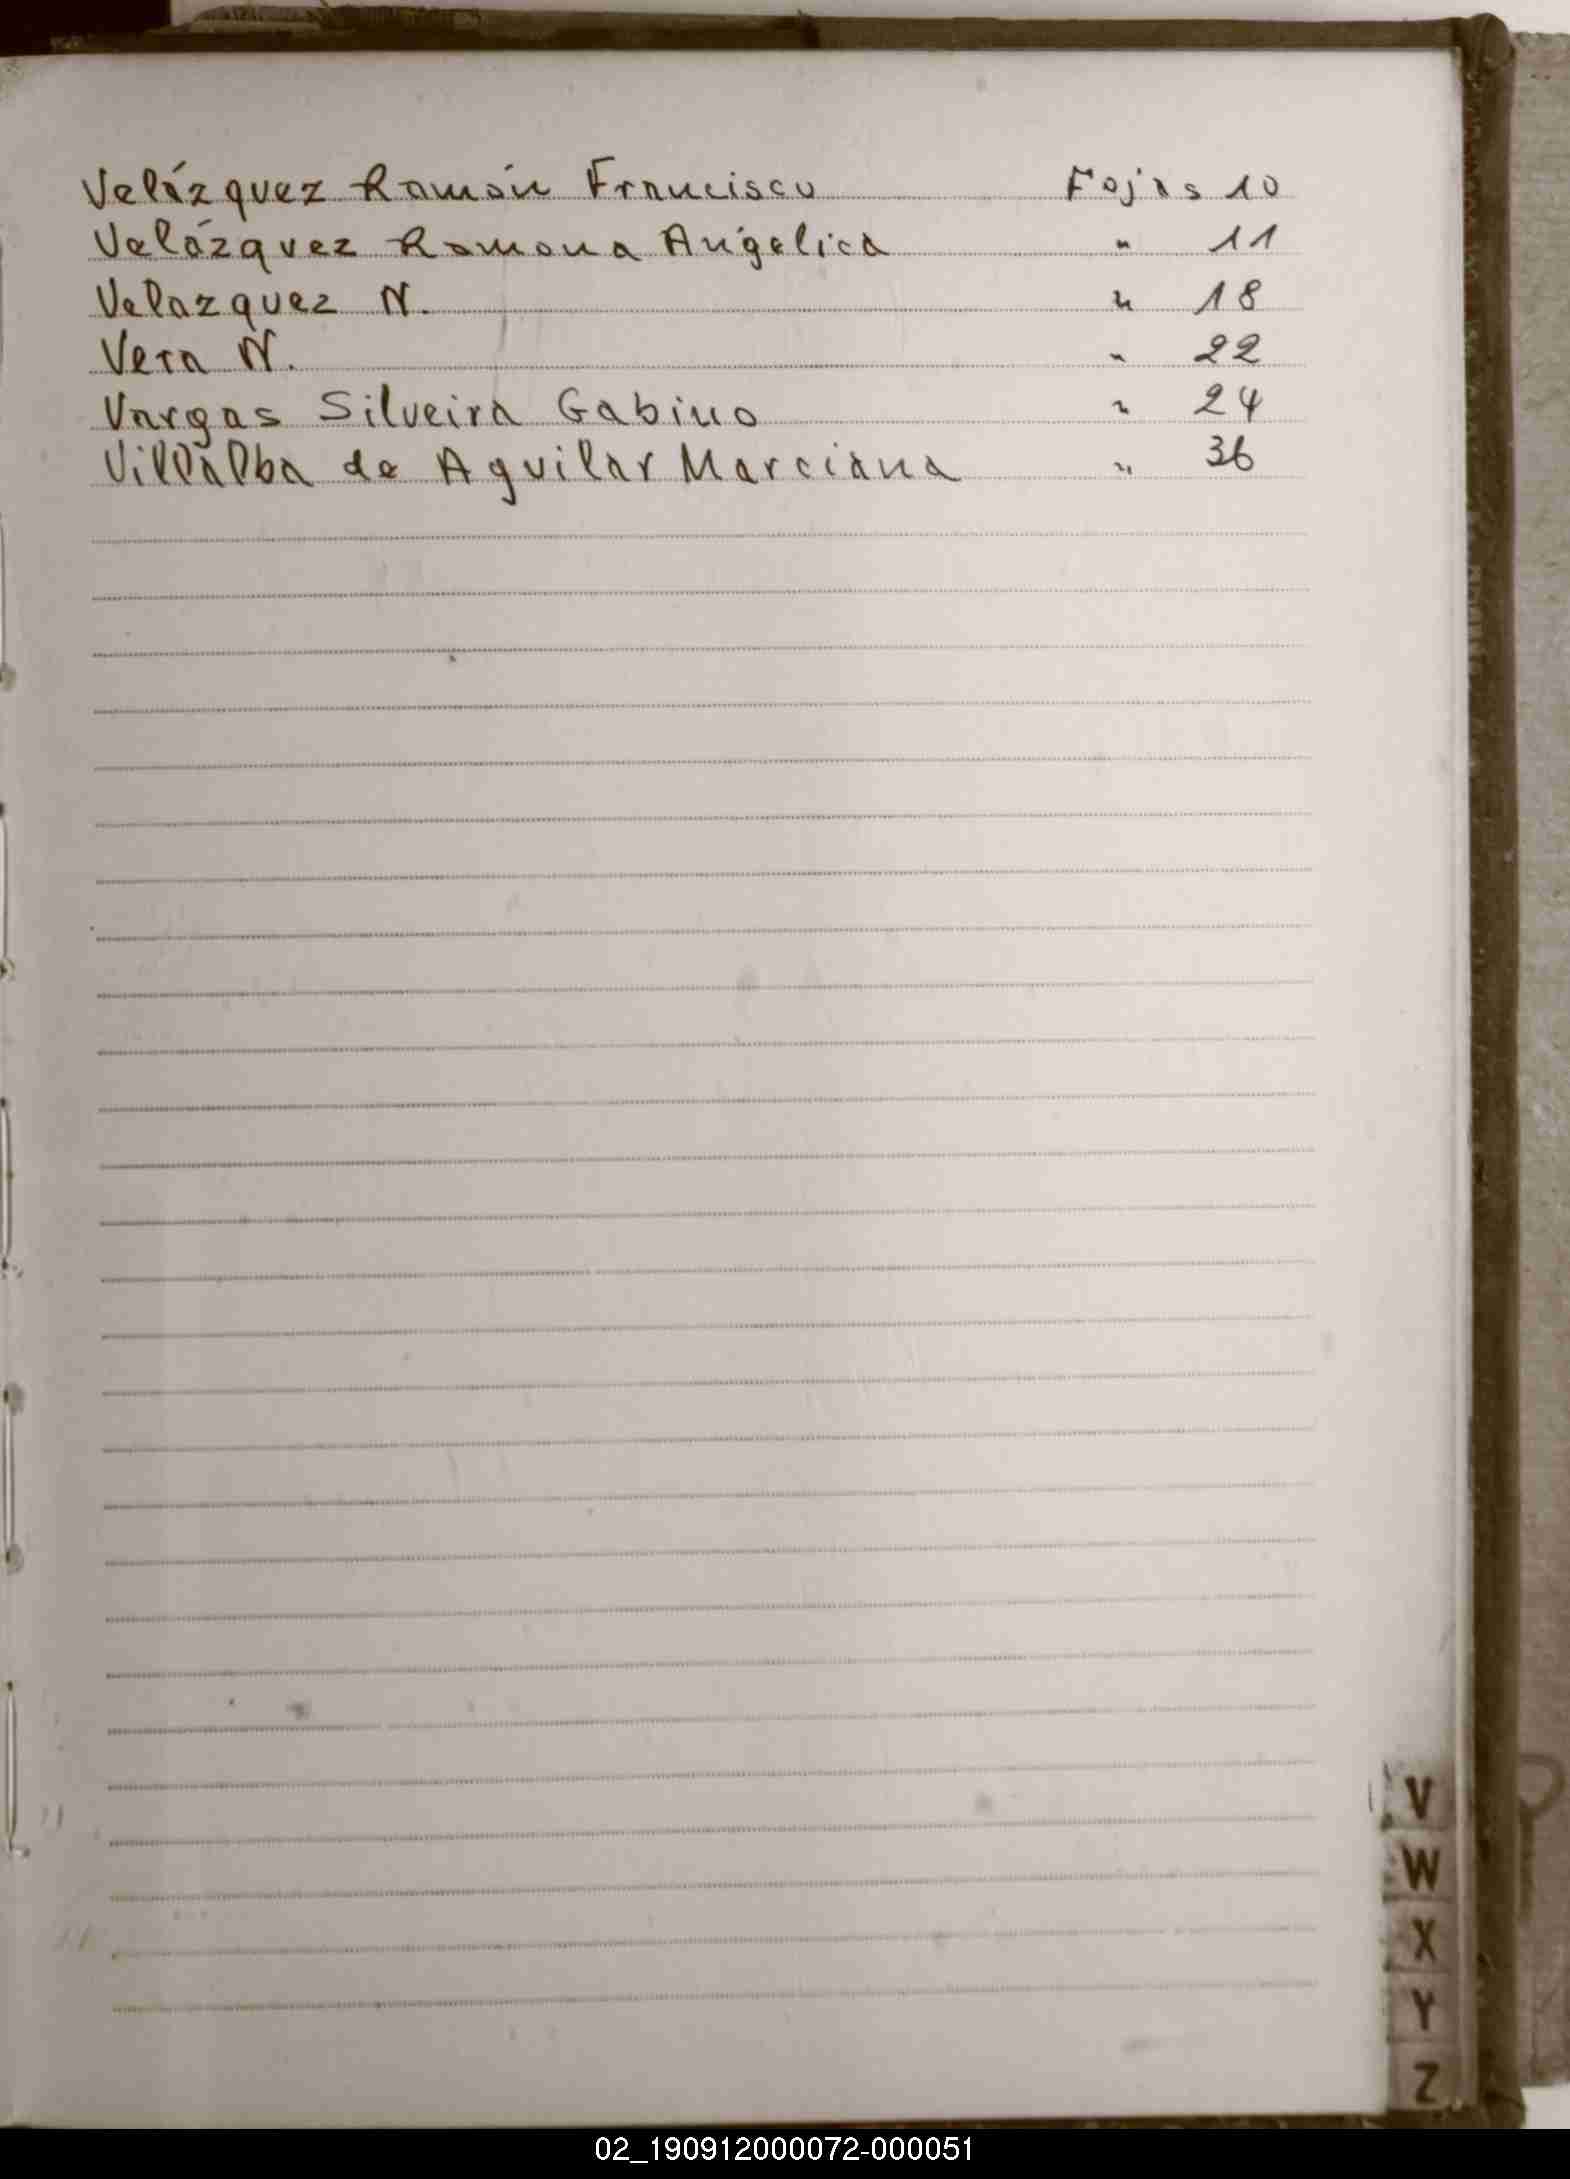 Velázquez Ramón Francisco Fojas 10
Velázquez Ramona Angelica " 11
Velazquez N. " 18
Vera N. " 22
Vargas Silveira Gabino " 24
Villalba de Aguilar Marciana " 36
V
W
X
Y
Z
02_190912000072-000051